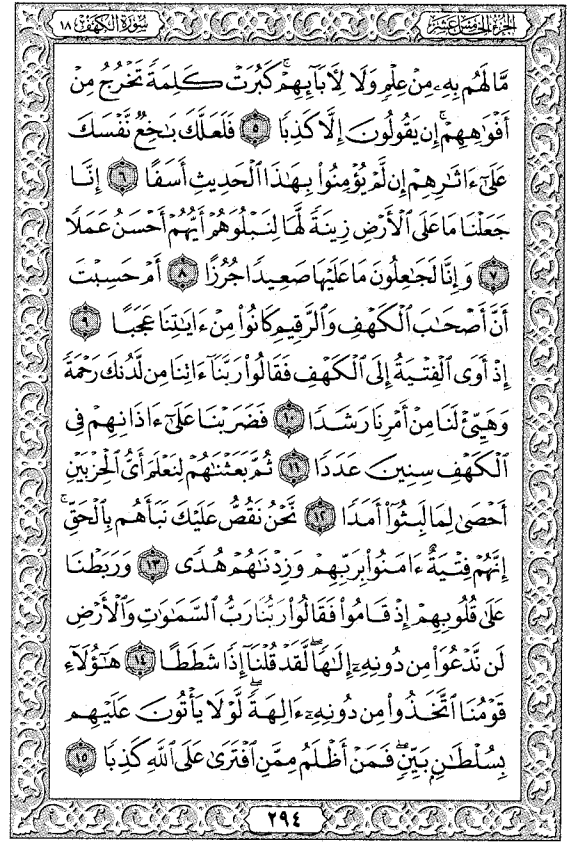 الجزء الخامس عشر
سورة الكهف ١٨
مَّا لَهُم بِهِۦ مِنْ عِلْمٍ وَلَا لِأَبَآئِهِمْ ۚ كَبُرَتْ كَلِمَةً تَخْرُجُ مِنْ
أَفْوَٰهِهِمْ ۚ إِن يَقُولُونَ إِلَّا كَذِبًا ٥ فَلَعَلَّكَ بَٰخِعٌ نَّفْسَكَ
عَلَىٰٓ ءَاثَٰرِهِمْ إِن لَّمْ يُؤْمِنُوا۟ بِهَٰذَا ٱلْحَدِيثِ أَسَفًا ٦ إِنَّا
جَعَلْنَا مَا عَلَى ٱلْأَرْضِ زِينَةً لَّهَا لِنَبْلُوَهُمْ أَيُّهُمْ أَحْسَنُ عَمَلًا
٧ وَإِنَّا لَجَٰعِلُونَ مَا عَلَيْهَا صَعِيدًا جُرُزًا ٨ أَمْ حَسِبْتَ
أَنَّ أَصْحَٰبَ ٱلْكَهْفِ وَٱلرَّقِيمِ كَانُوا۟ مِنْ ءَايَٰتِنَا عَجَبًا ٩
إِذْ أَوَى ٱلْفِتْيَةُ إِلَى ٱلْكَهْفِ فَقَالُوا۟ رَبَّنَآ ءَاتِنَا مِن لَّدُنكَ رَحْمَةً
وَهَيِّئْ لَنَا مِنْ أَمْرِنَا رَشَدًا ١٠ فَضَرَبْنَا عَلَىٰٓ ءَاذَانِهِمْ فِى
ٱلْكَهْفِ سِنِينَ عَدَدًا ١١ ثُمَّ بَعَثْنَٰهُمْ لِنَعْلَمَ أَىُّ ٱلْحِزْبَيْنِ
أَحْصَىٰ لِمَا لَبِثُوٓا۟ أَمَدًا ١٢ نَّحْنُ نَقُصُّ عَلَيْكَ نَبَأَهُم بِٱلْحَقِّ ۚ
إِنَّهُمْ فِتْيَةٌ ءَامَنُوا۟ بِرَبِّهِمْ وَزِدْنَٰهُمْ هُدًى ١٣ وَرَبَطْنَا
عَلَىٰ قُلُوبِهِمْ إِذْ قَامُوا۟ فَقَالُوا۟ رَبُّنَا رَبُّ ٱلسَّمَٰوَٰتِ وَٱلْأَرْضِ
لَن نَّدْعُوَا۟ مِن دُونِهِۦٓ إِلَٰهًا ۖ لَّقَدْ قُلْنَآ إِذًا شَطَطًا ١٤ هَٰٓؤُلَآءِ
قَوْمُنَا ٱتَّخَذُوا۟ مِن دُونِهِۦٓ ءَالِهَةً ۖ لَّوْلَا يَأْتُونَ عَلَيْهِم
بِسُلْطَٰنٍۭ بَيِّنٍ ۖ فَمَنْ أَظْلَمُ مِمَّنِ ٱفْتَرَىٰ عَلَى ٱللَّهِ كَذِبًا ١٥
٢٩٤